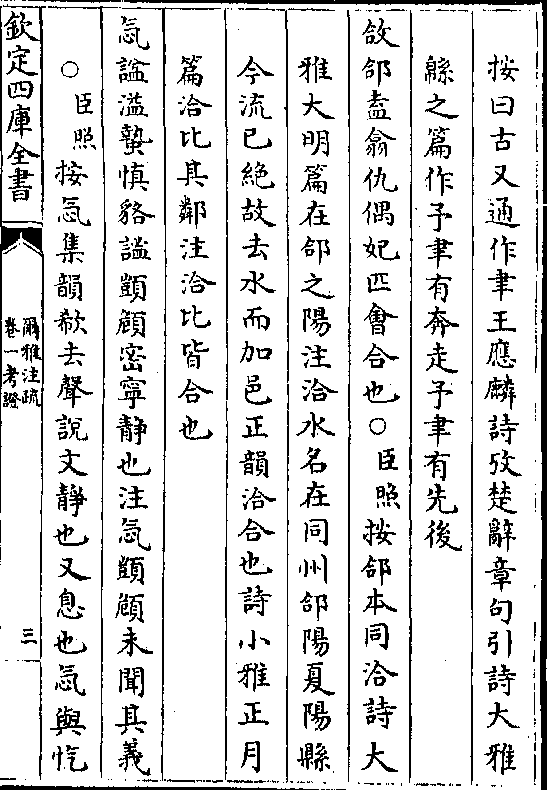 按曰古又通作聿王應麟詩攷楚辭章句引詩大雅
緜之篇作予聿有奔走予聿有先後
敆郃盍翕仇偶妃匹會合也○臣照按郃本同洽詩大
雅大明篇在郃之陽注洽水名在同州郃陽夏陽縣
今流已絶故去水而加邑正韻洽合也詩小雅正月
篇洽比其鄰注洽比皆合也
忥謐溢蟄慎貉謐顗頠密寧静也注忥顗頠未聞其義
○臣照按忥集韻欷去聲說文靜也又息也忥與忔
欽定四庫全書
爾雅注疏
卷一考證
三